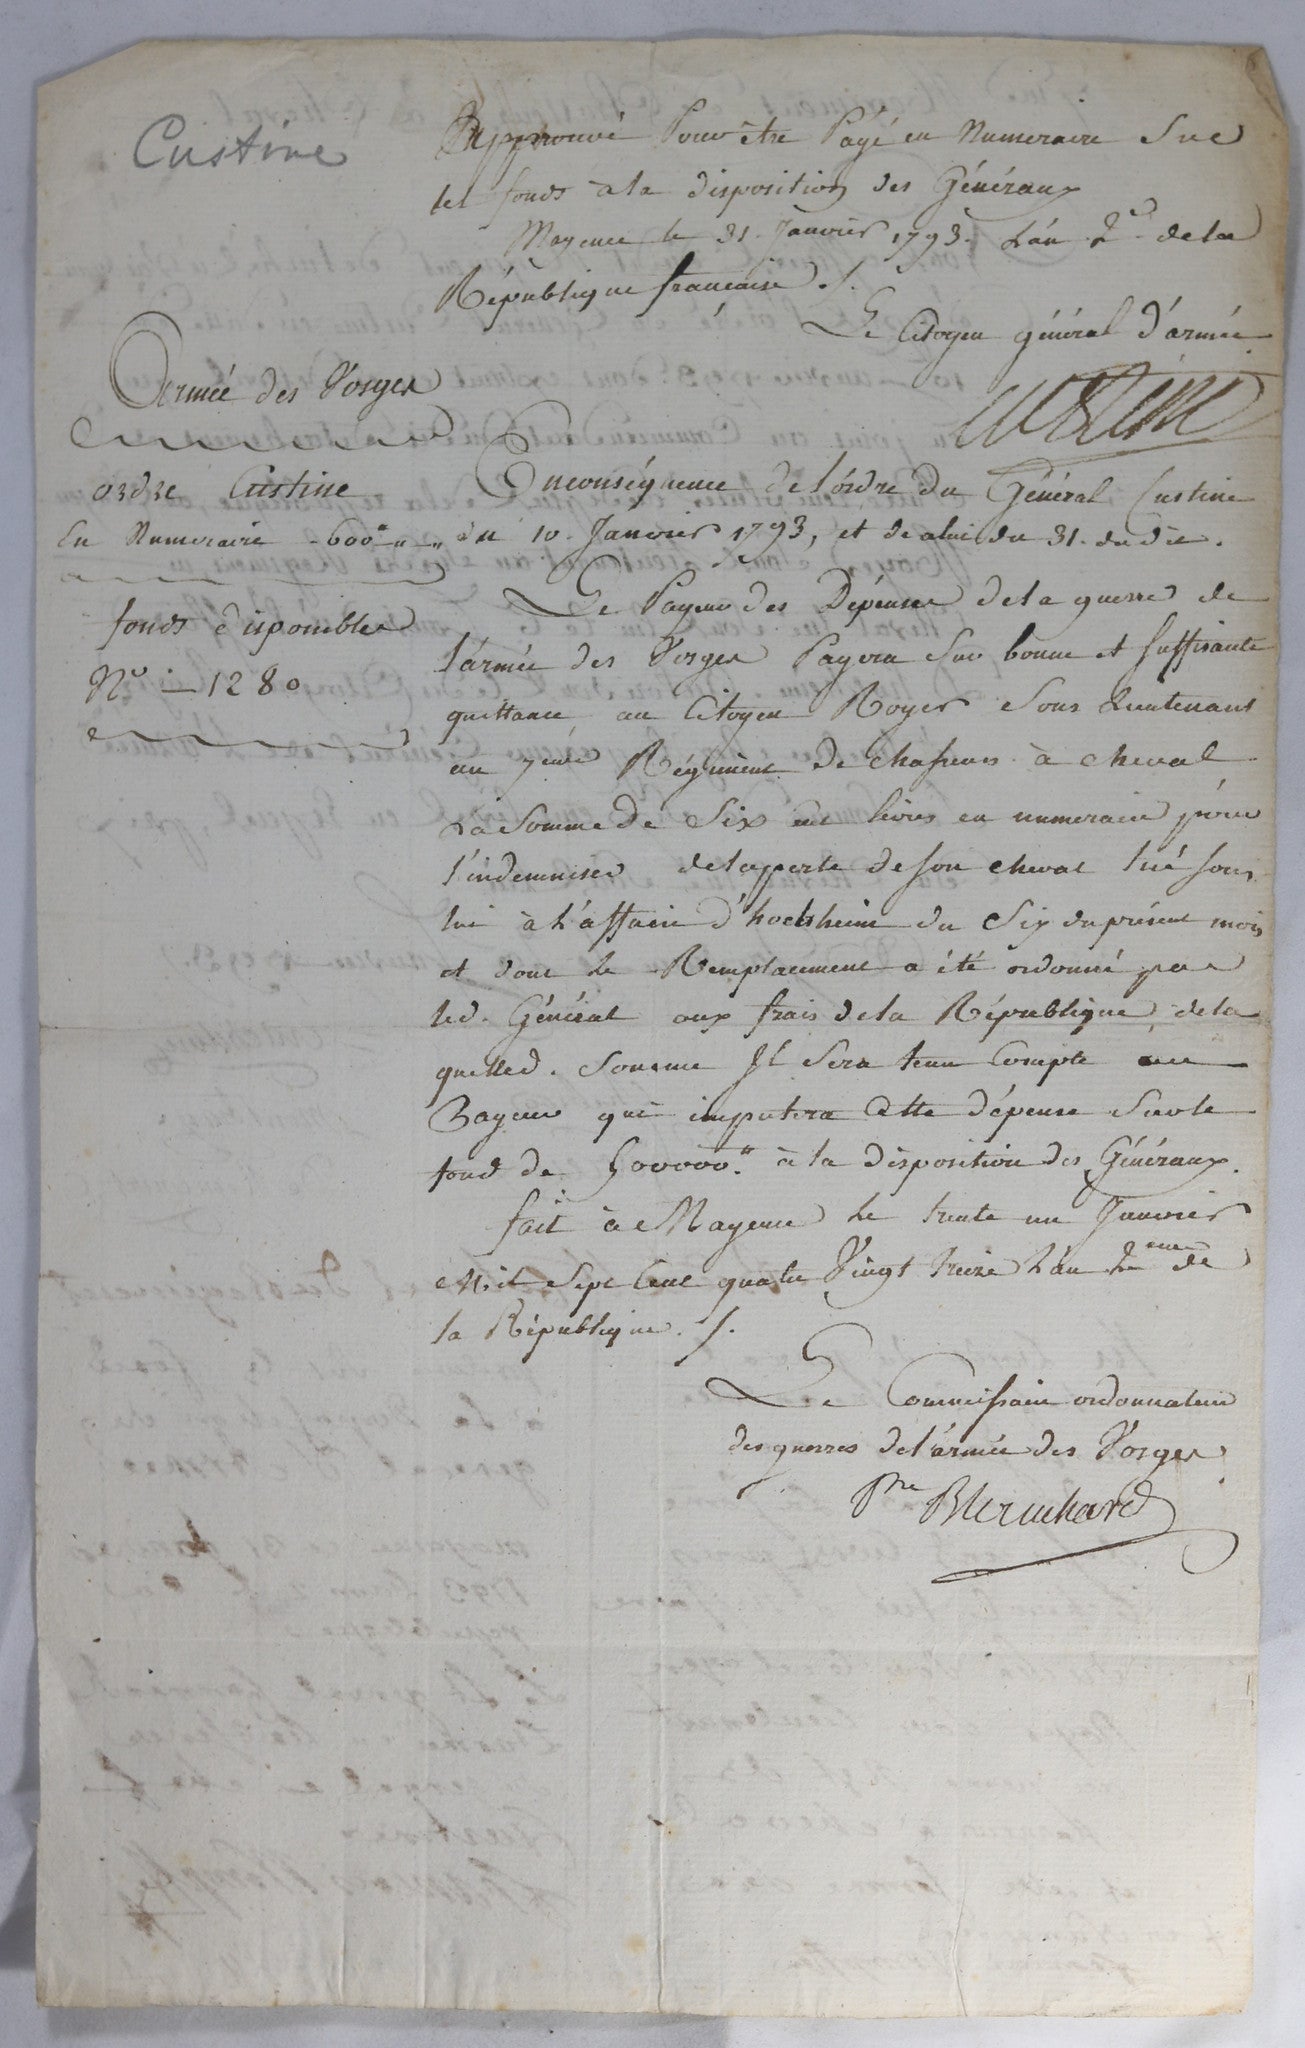 Custine
Approuvé Pour être Payé en Numeraire Sur
les fonds à la disposition des Généraux
Mayence le 31. Janvier 1793. L'an 2e de la
République française ./.
Le Citoyen général d'armée
Custine
Armée des Vosges
ordre Custine
En Numeraire 600" "
fonds disponibles
No 1280
En conséquence de l'ordre du Général Custine
du 10. Janvier 1793, et de celui du 31. du dit.
Le Payeur des Dépenses de la guerre de
l'armée des Vosges Payera sur bonne et suffisante
quittance au Citoyen Royer Sous Lieutenant
au 7eme Régiment de Chasseurs à cheval
La Somme de Six cent livres en numeraire pour
l'indemniser de la perte de son cheval tué sous
lui à l'affaire d'hocheim du Six du présent mois
et dont le Remplacement a été ordonné par
led. Général aux frais de la République, de la
quelled. Somme Il Sera tenu Compte au
Payeur qui imputera Cette dépense Sur le
fond de 500000." à la disposition des Généraux.
fait à Mayence le trente un Janvier
Mil Sept Cent quatre Vingt treize L'an 2eme de
la République ./.
Le Commissaire ordonnateur
des guerres de l'armée des Vosges
Pre Blanchard